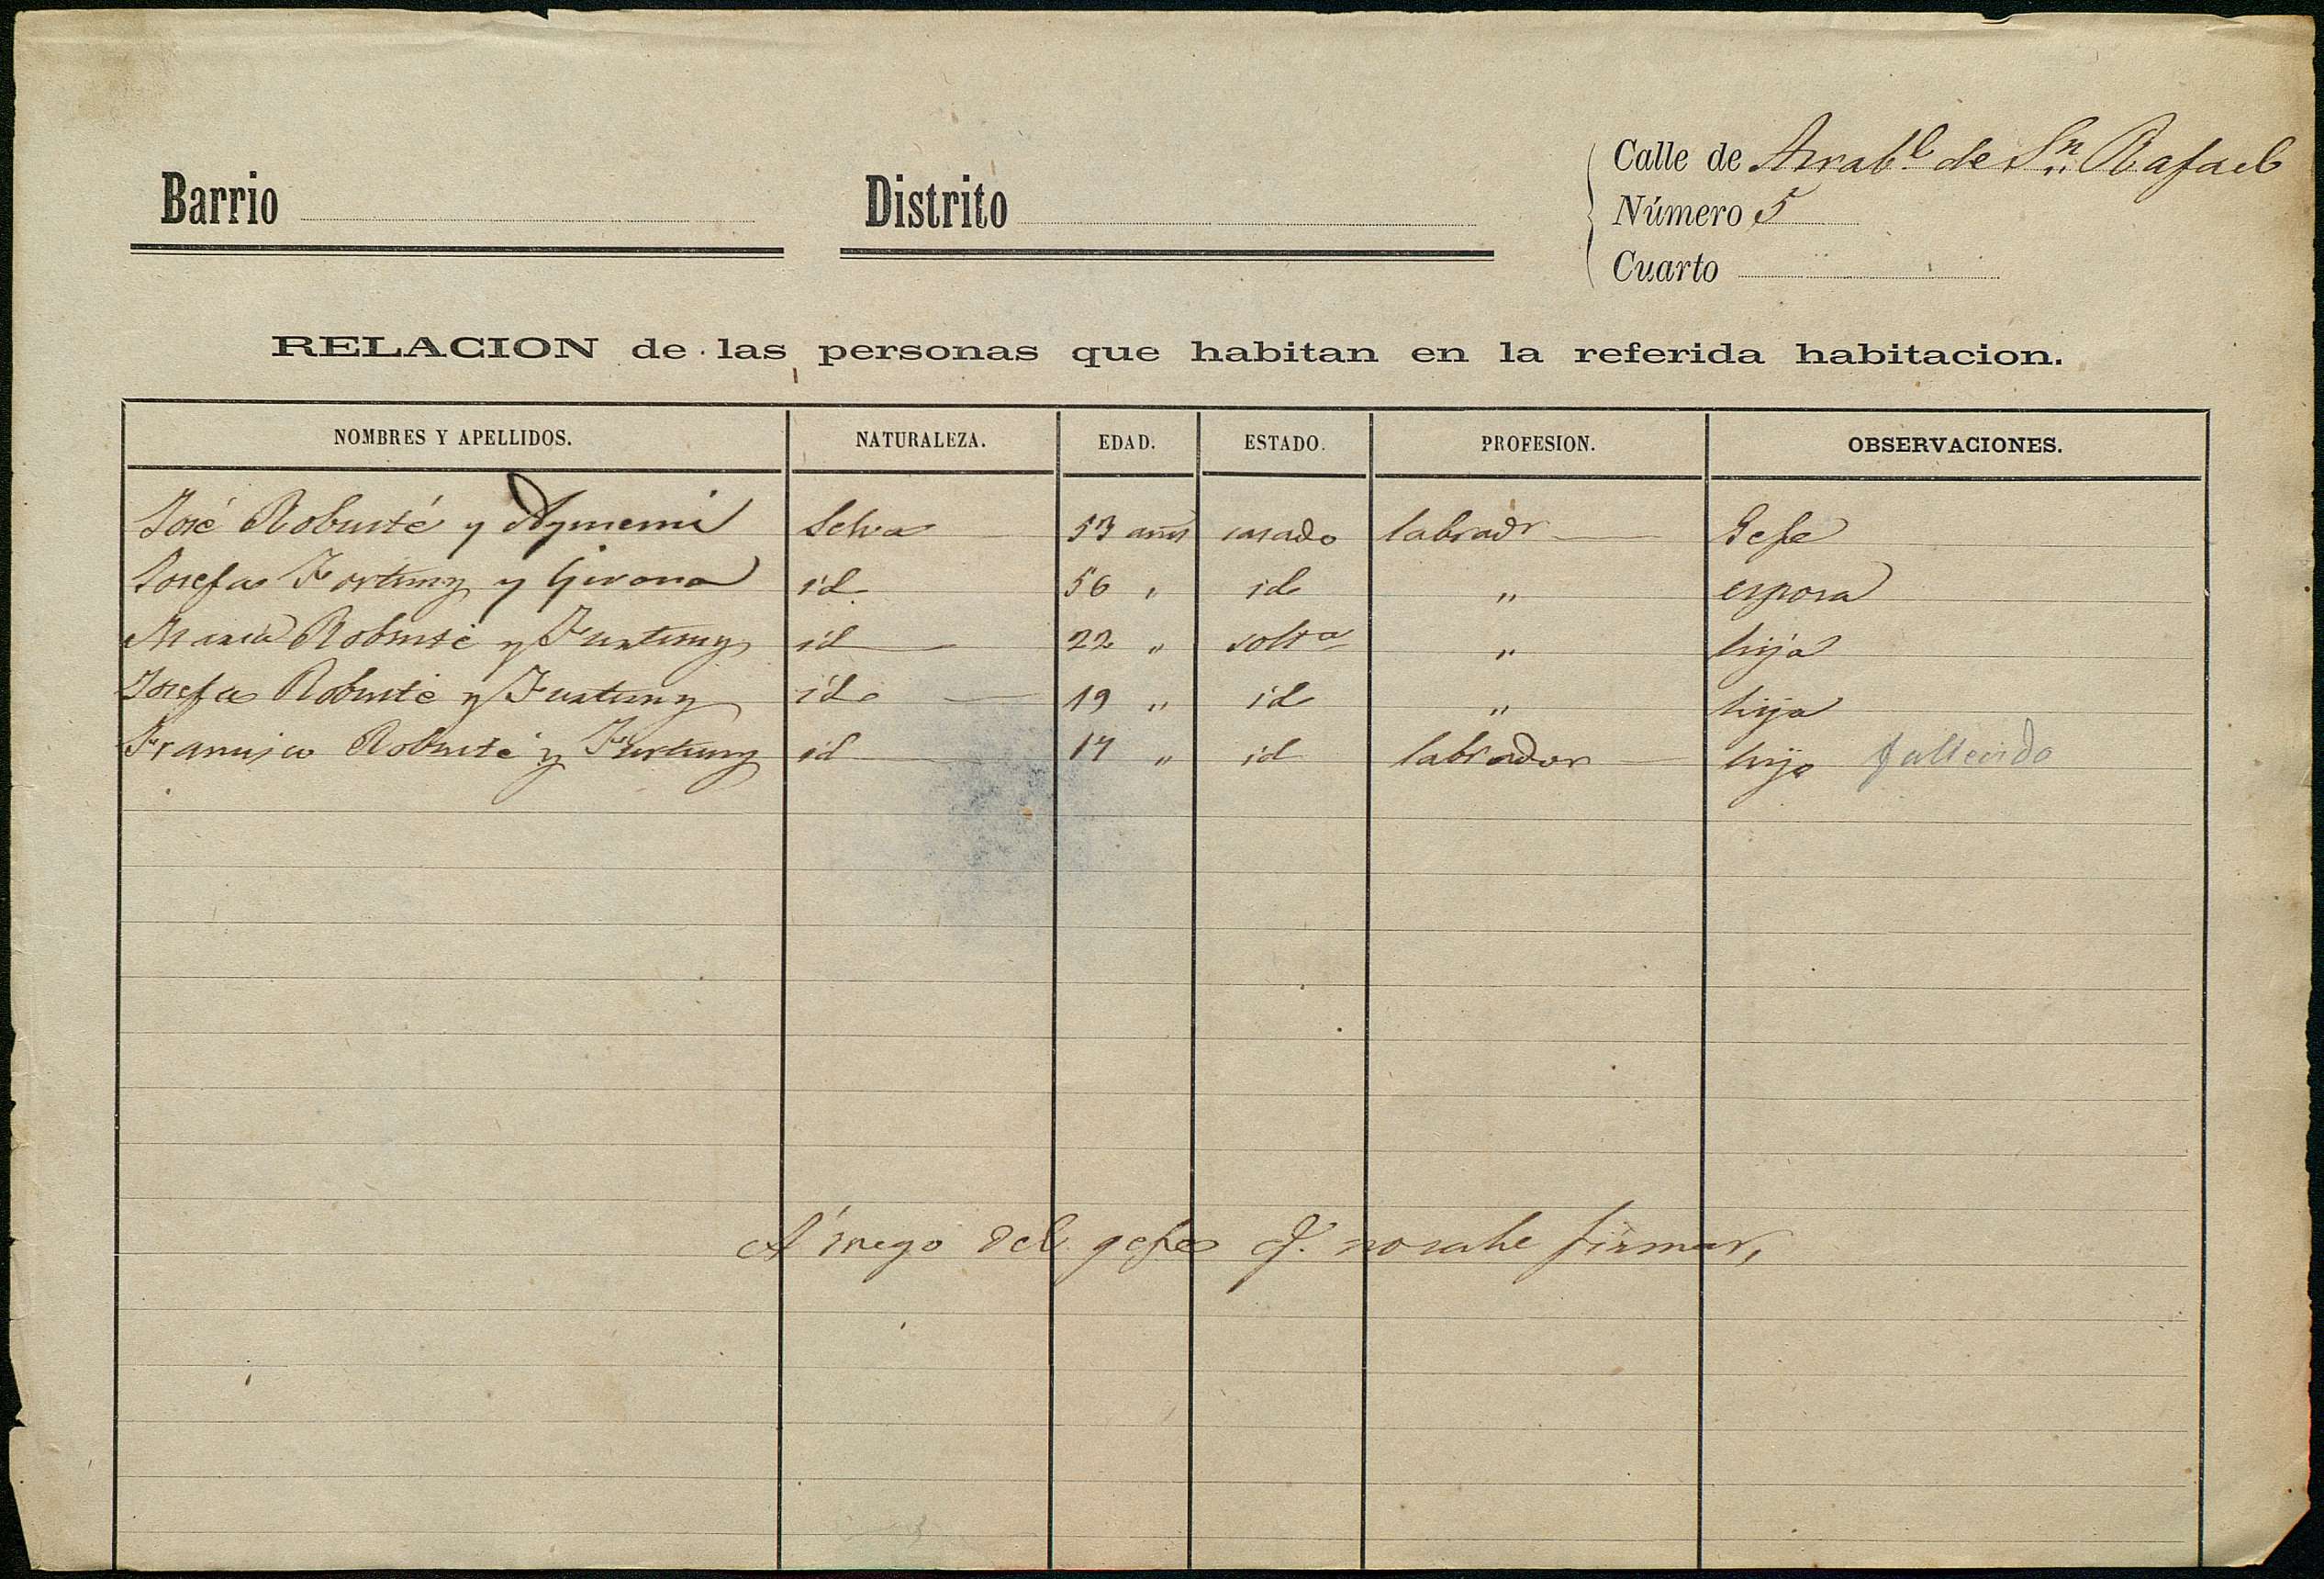 Barrio
Distrito
Calle de Arrab.l de Sn. Rafael
Número 5
Cuarto
RELACION de las personas que habitan en la referida habitacion.
NOMBRES Y APELLIDOS. NATURALEZA. EDAD. ESTADO. PROFESION. OBSERVACIONES.
José Robusté y Aymemi Selva 53 años casado labrador Gefe
Josefa Fortuny y Girona id 56 " id " esposa
Maria Robusté y Furtuny id 22 " solt.a " hija
Josefa Robusté y Furtuny id 19 " id " hija
Francisco Robusté y Furtuny id 17 " id labrador hijo fallecido
A ruego del gefe q. no sabe firmar,